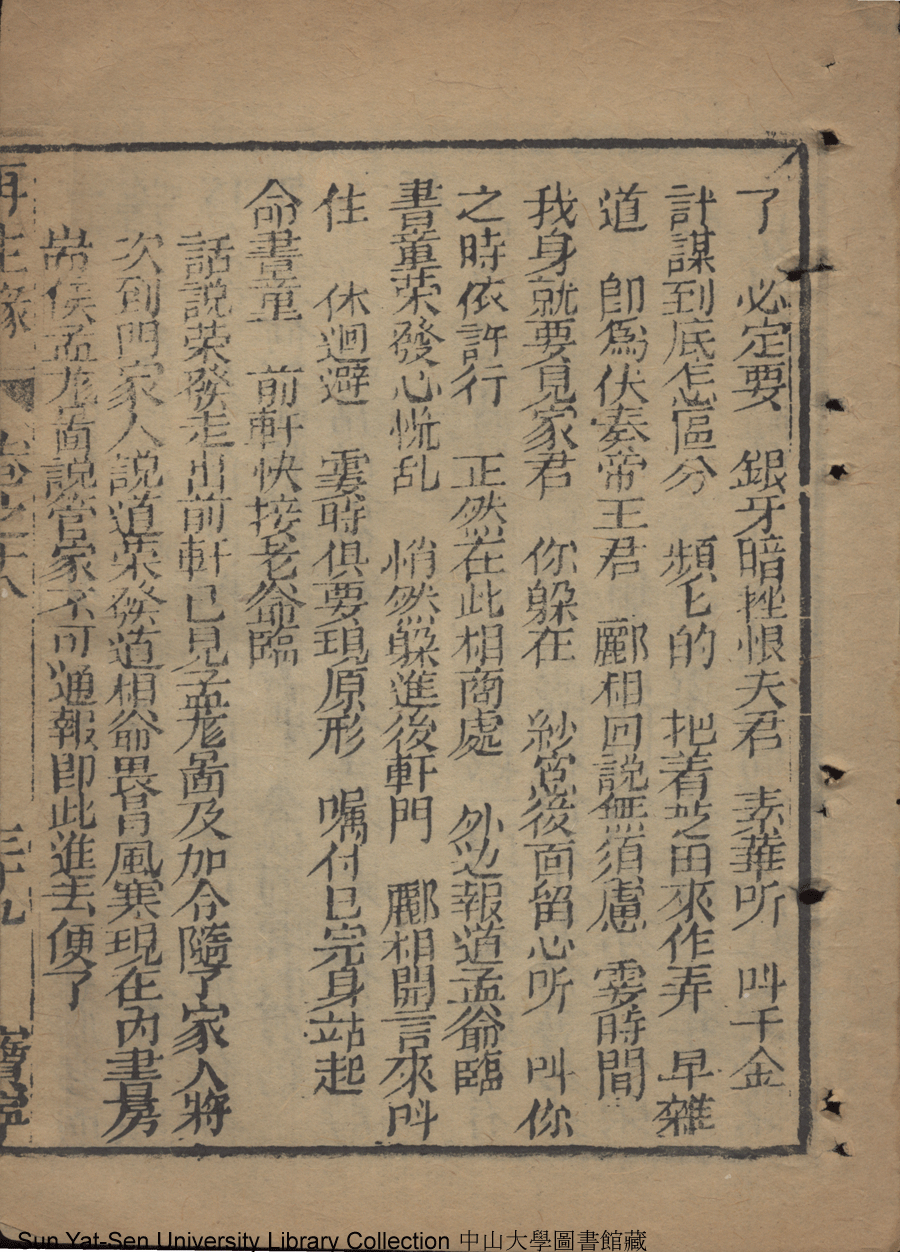 了　必定要　銀牙暗挫恨夫君　素華听　叫千金
計謀到底怎區分　頻匕的　把着芝田來作弄　早難
道　卽爲伏奏帝王君　酈相回說無須慮　霎時間
我身就要見家君　你躲在　紗窓後面留心听　叫你
之時依許行　正然在此相商處　外边報道孟爺臨
書童荣發心恍乱　悄然躲進後軒門　酈相開言來叫
住　休迴避　霎時俱要現原形　嘱付已完身站起
命書童　前軒快接老爺臨
話說荣發走出前軒已見孟龙啚及加令隨了家人將
次到門家人說道荣發道相爺畏冒風寒現在內書房
耑候孟龙啚說管家不可通報即此進去便了
再生緣　卷之十八　三十九　寶寧
Sun Yat-Sen University Library Collection 中山大學圖書館藏